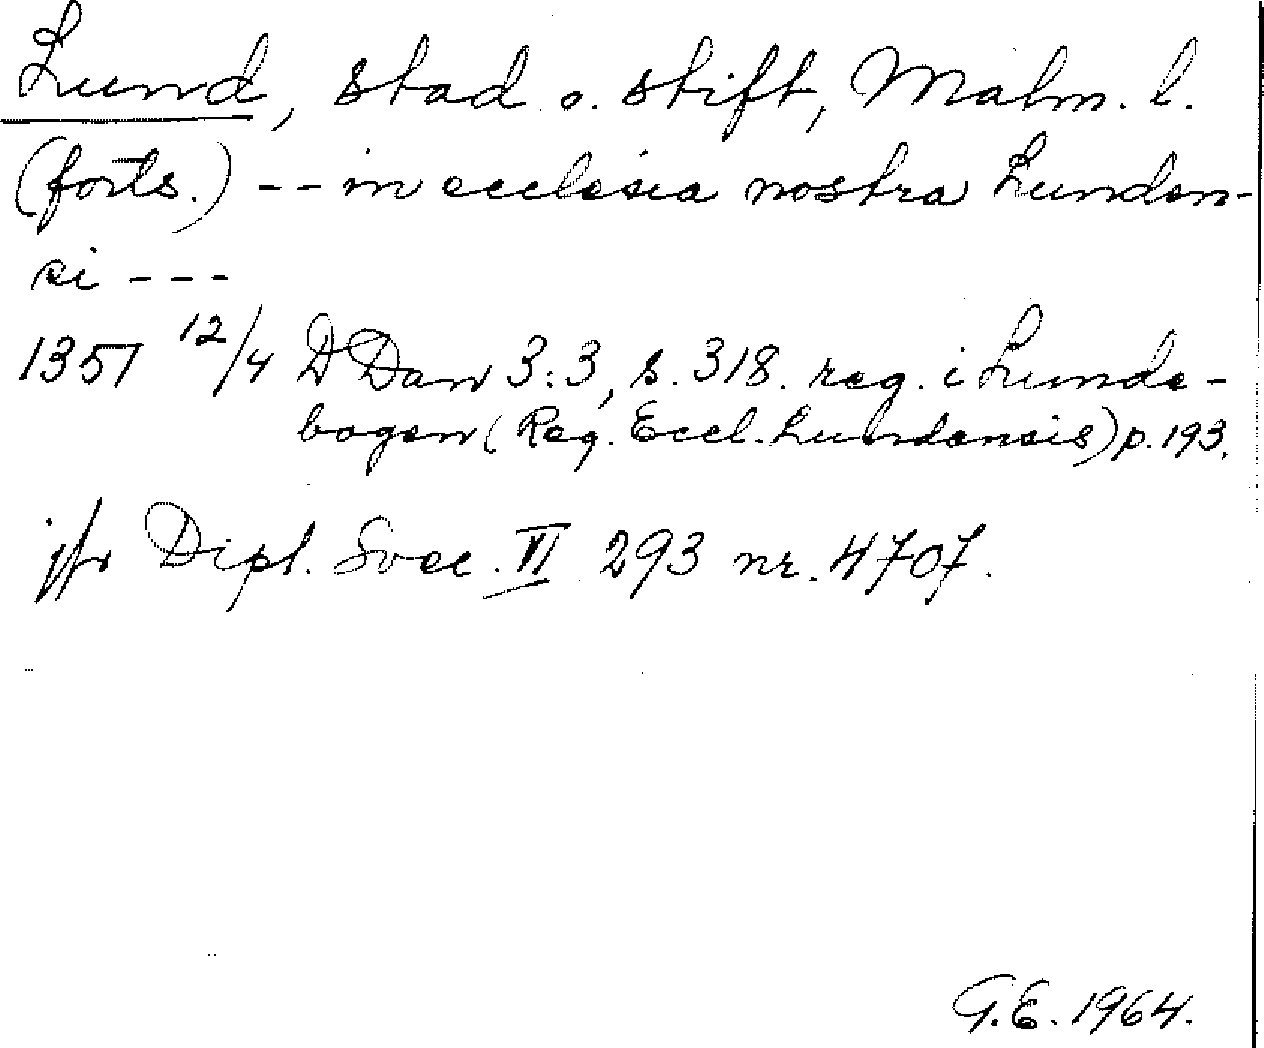 Lund, stad o. stift, Malm. l.
(forts.) -- in ecclesia nostra Lunden-
si ---
1351 12/4 DDan 3:3, s. 318. reg. i Lunde-
bogen (Reg. Eccl. Lundensis) p. 193.
jfr Dipl. Svec. VI 293 nr. 4707.
G.E. 1964.